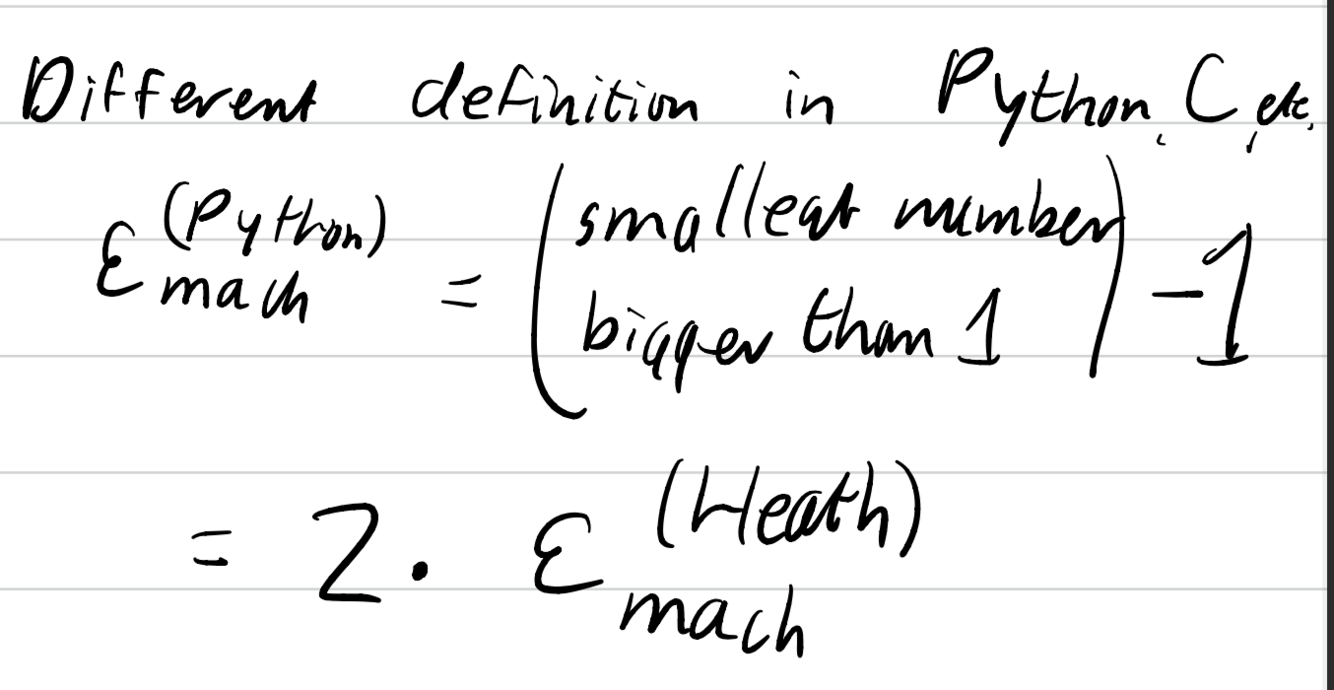 Different definition in Python, C, etc.
ε_mach^(Python) = (smallest number bigger than 1) - 1
= 2 · ε_mach^(Heath)